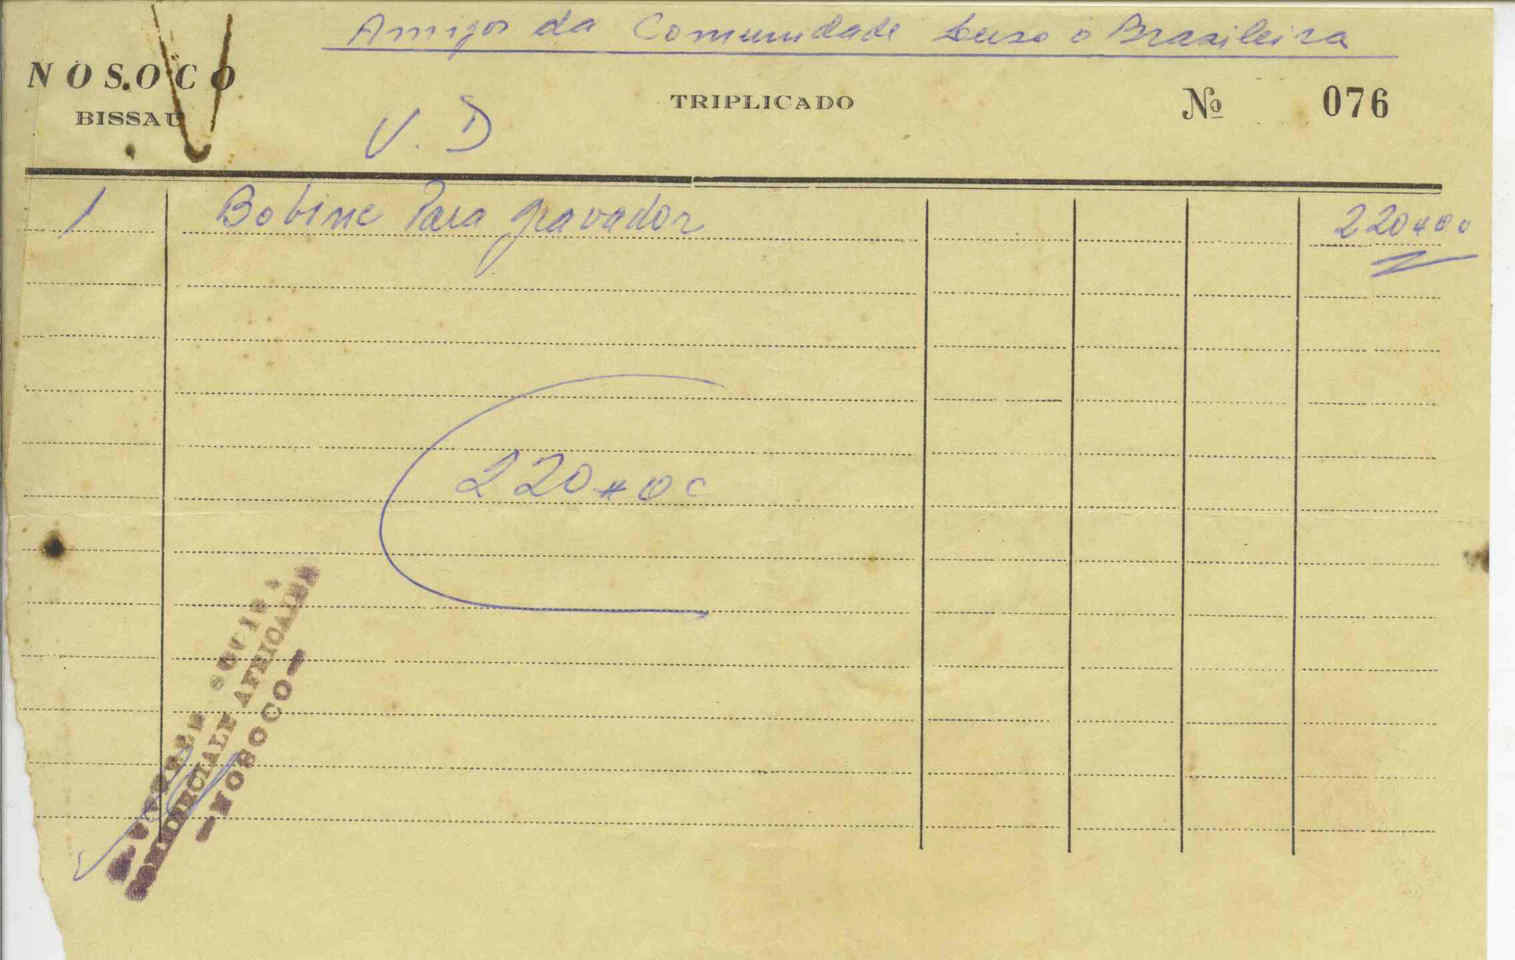 Amigos da Comunidade Luso o Brasileira
NOSOCO
BISSAU
TRIPLICADO
Nº 076
V. D
1 Bobine Para gravador 220#00
220#00
COMMERCIALE AFRICAINE
—NOSOCO—